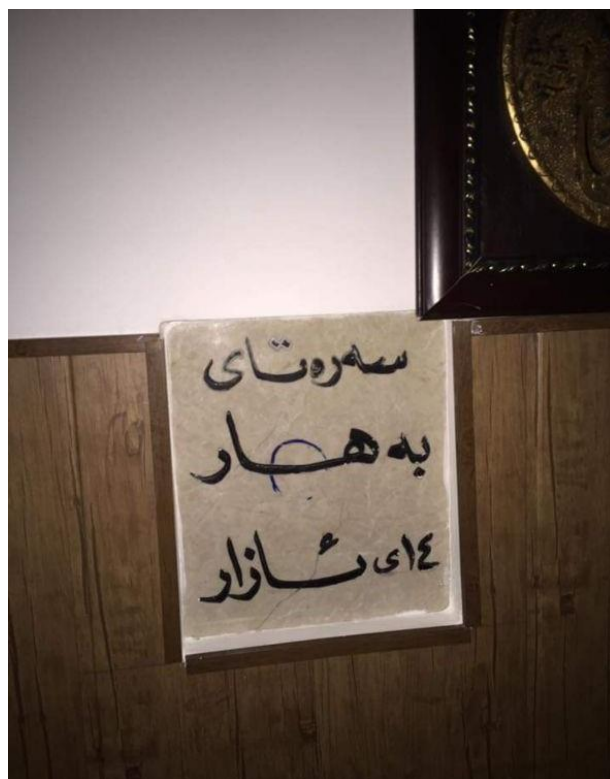 سەرەتای
بەهار
١٤ی ئازار